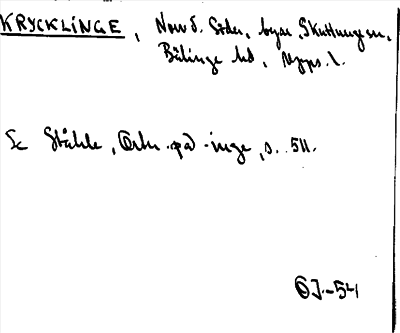 KRYCKLINGE, Nord. Söder, byar, Skuttunge sn,
Bälinge hd, Upps. l.
Se Ståhle, Ortn. på -inge, s. 511.
OJ-54